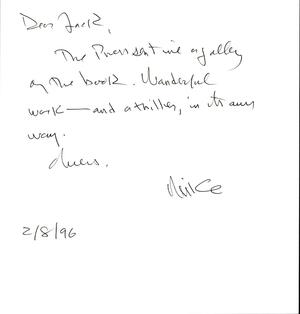 Dear Jack,
The President me a galley
of the book. Wonderful
work — and a thriller, in its own
way.
Mike
2/8/96